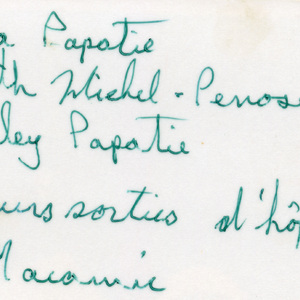 a Papatie
th Michel-Penose
ley Papatie
urs sorties d'hôp
Macamic